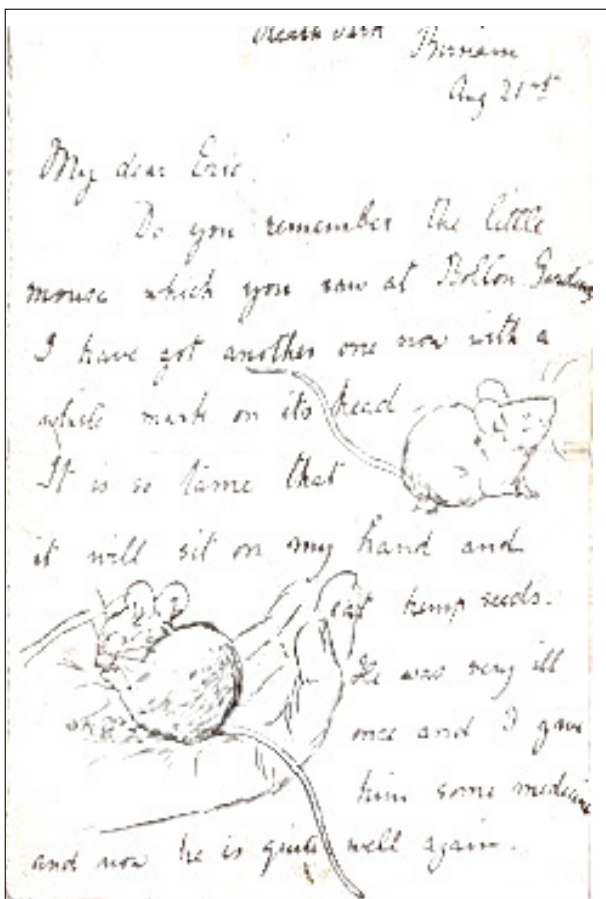 Heath Park Birnam
Aug 21st
My dear Eric.
Do you remember the little
mouse which you saw at Bolton Gardens
I have got another one now with a
white mark on its head.
It is so tame that
it will sit on my hand and
eat hemp seeds.
He was very ill
once and I gave
him some medicine
and now he is quite well again.